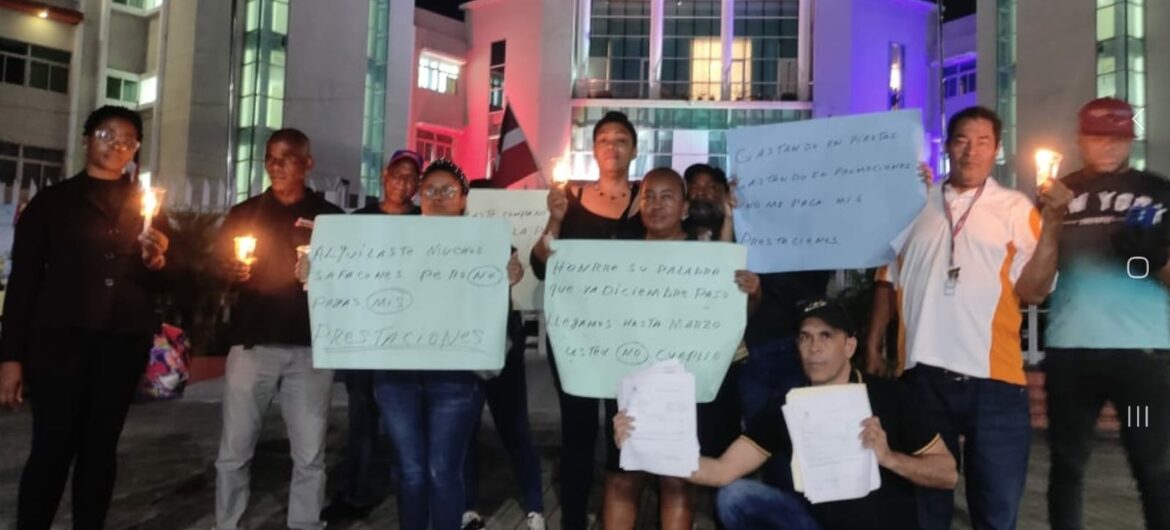 ALQUILASTE MUCHOS
SAFACONES PERO NO
PAGAS MIS
PRESTACIONES
HONRRE SU PALABRA
QUE YA DICIEMBRE PASO
LLEGAMOS HASTA MARZO
USTED NO CUMPLIO
GASTANDO EN FIESTAS
GASTANDO EN PROMOCIONES
NO ME PAGA MIS
PRESTACIONES
NEW YORK